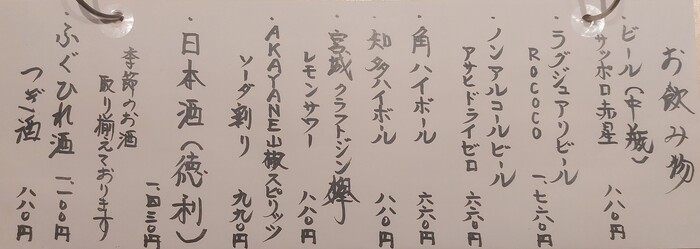 お飲み物
・ビール(中瓶)
サッポロ赤星 八八〇円
・ラグジュアリビール
ROCOCO 一、七六〇円
・ノンアルコールビール
アサヒドライゼロ 六六〇円
・角ハイボール 六六〇円
・知多ハイボール 八八〇円
・宮城クラフトジン欅
レモンサワー 八八〇円
・AKAYANE山椒スピリッツ
ソーダ割り 九九〇円
・日本酒(徳利) 一、四三〇円
季節のお酒
取り揃えております
・ふぐひれ酒 一、一〇〇円
つぎ酒 八八〇円